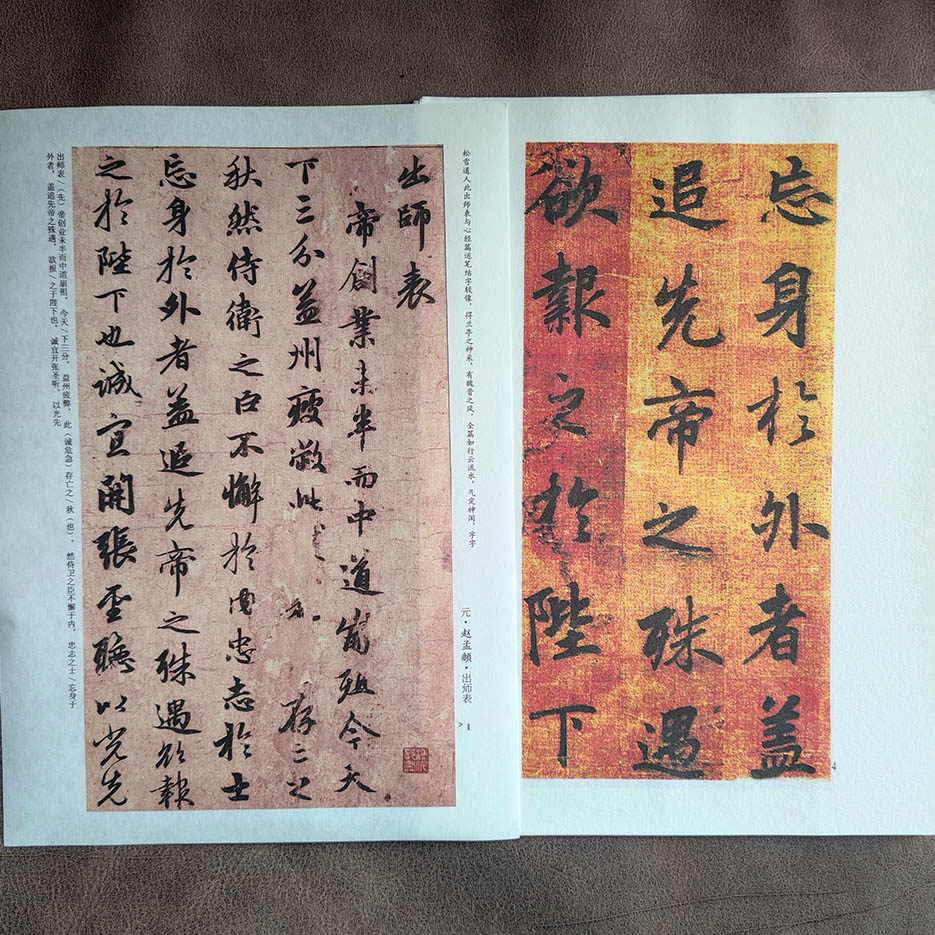 松雪道人此出师表与心经篇运笔结字较像，得兰亭之神采，有魏晋之风，全篇如行云流水，气定神闲，字字
元·赵孟頫·出师表
1
出師表
帝創業未半而中道崩殂今天
下三分益州疲敝此存亡之
秋然侍衛之臣不懈於内忠志於士
忘身於外者盖追先帝之殊遇欲報
之於陛下也誠宜開張聖聽以光先
出师表/（先）帝创业未半而中道崩殂，今天/下三分，益州疲弊，此（诚危急）存亡之/秋（也）。然侍卫之臣不懈于内，忠志之士/忘身于
外者，盖追先帝之殊遇，欲报/之于陛下也。诚宜开张圣听，以光先
忘身於外者盖
追先帝之殊遇
欲報之於陛下
4